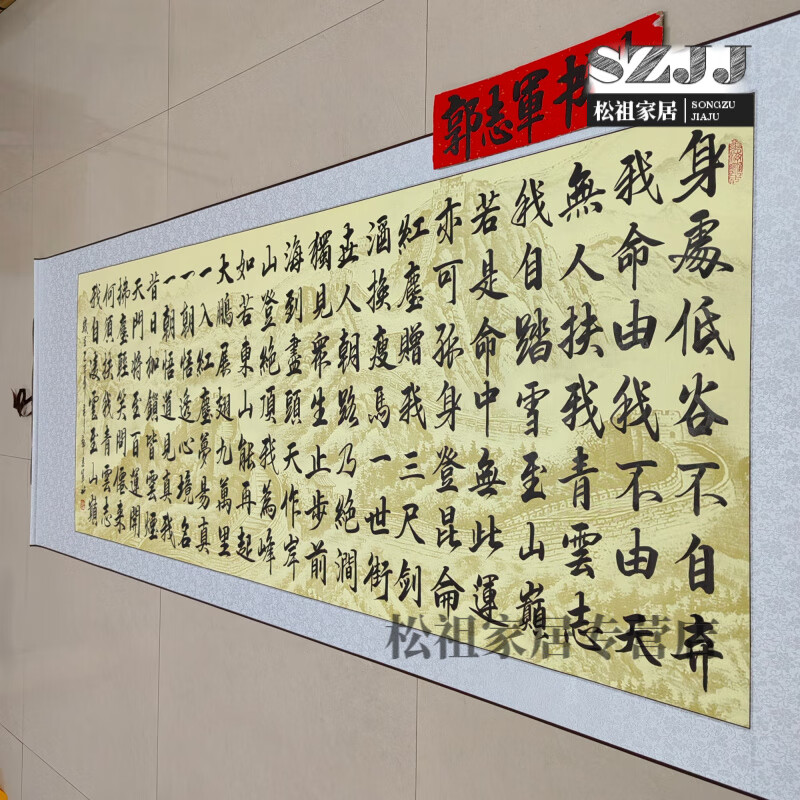 SZJJ
松祖家居
SONGZU
JIAJU
郭志軍书
身處低谷不自弃
我命由我不由天
無人扶我青雲志
我自踏雪至山巔
若是命中無此運
亦可孤身登昆侖
紅塵贈我三尺劍
酒換瘦馬一世街
世人朝路乃絕澗
獨見衆生止步前
海到盡頭天作岸
山登絕頂我為峰
如若東山能再起
大鵬展翅九萬里
一入紅塵夢易真
一朝悟透心境名
一朝悟道見真我
昔日枷鎖皆雲煙
天門將至百蓮開
拂塵輕笑問僊來
何須扶我青雲志
我自凌雲至山巔
松祖家居专营店